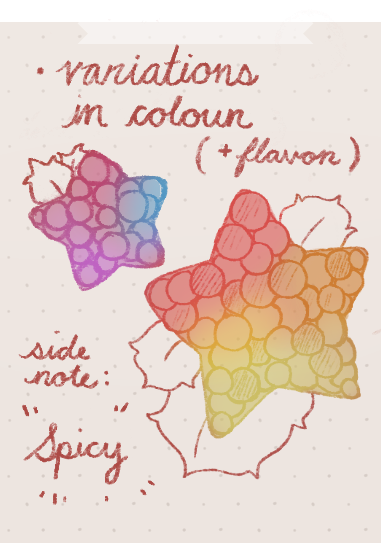 • variations
in colour
(+ flavor)
side
note:
" Spicy "